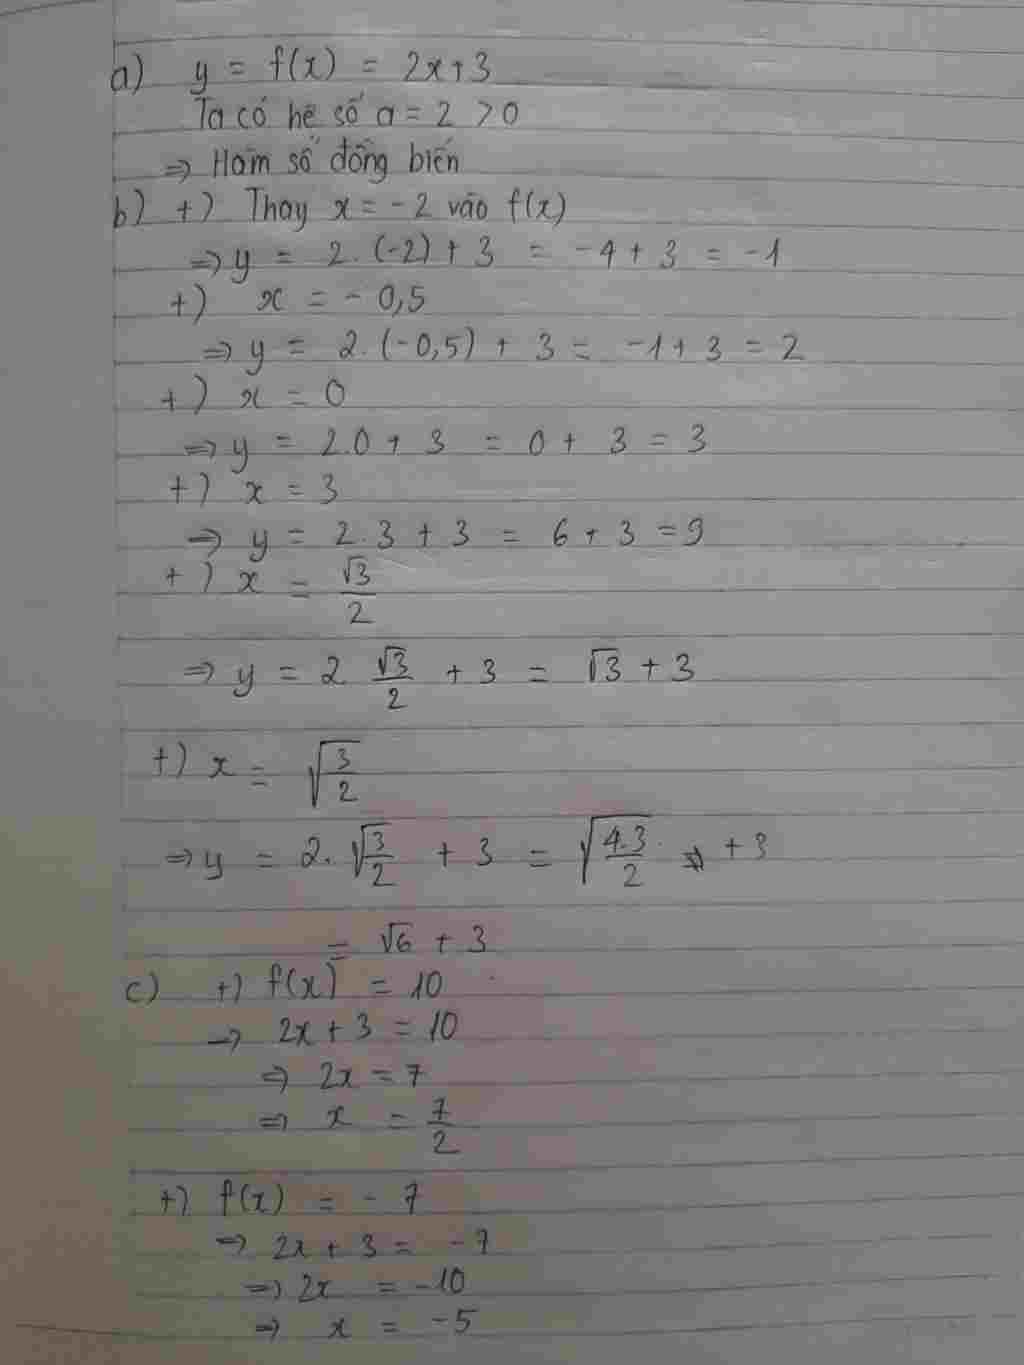 a) y = f(x) = 2x+3
Ta có hệ số a = 2 > 0
⇒ Hàm số đồng biến
b) +) Thay x = -2 vào f(x)
⇒ y = 2.(-2) + 3 = -4 + 3 = -1
+) x = -0,5
⇒ y = 2.(-0,5) + 3 = -1 + 3 = 2
+) x = 0
⇒ y = 2.0 + 3 = 0 + 3 = 3
+) x = 3
⇒ y = 2.3 + 3 = 6 + 3 = 9
+) x = √3/2
⇒ y = 2 √3/2 + 3 = √3 + 3
+) x = √(3/2)
⇒ y = 2.√(3/2) + 3 = √(4.3/2) + 3
= √6 + 3
c) +) f(x) = 10
⇒ 2x + 3 = 10
⇒ 2x = 7
⇒ x = 7/2
+) f(x) = -7
⇒ 2x + 3 = -7
⇒ 2x = -10
⇒ x = -5